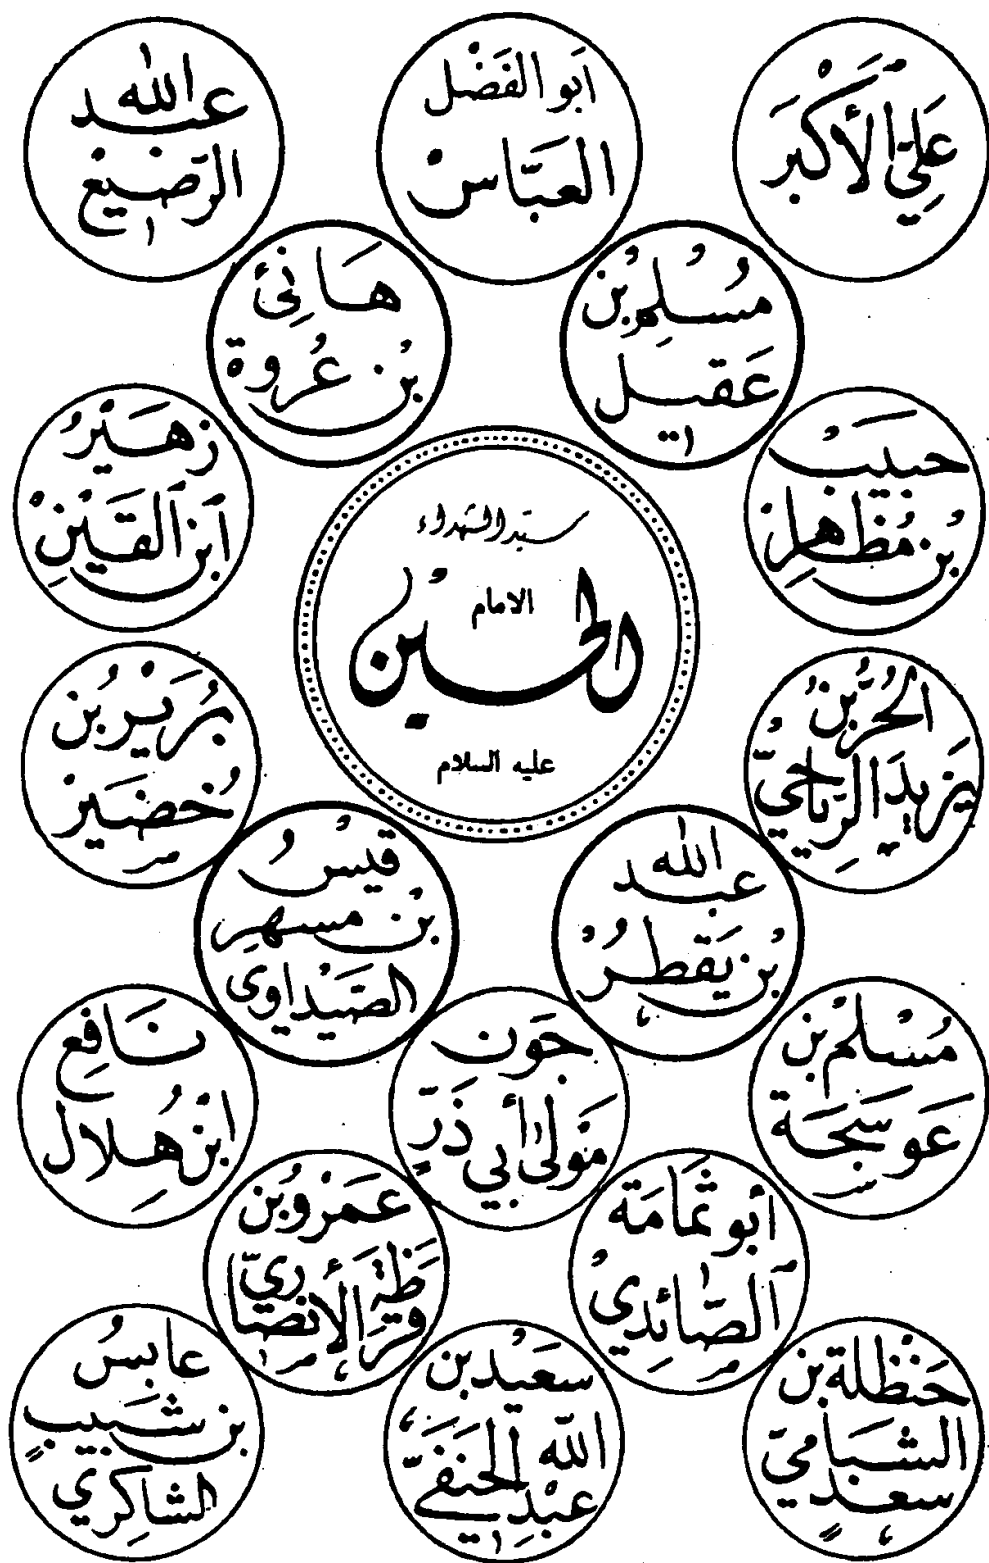 عَلِيّ الأَكْبَر
أَبو الفَضْل
العَبَّاسْ
عبد الله
الرَّضيعْ
مُسْلِمُ بْنُ
عَقيل
هَانِئ
بْنُ عُرْوة
حبيبْ
بْنُ مُظَاهِرْ
زهَيْرُ
ابْنُ القَيْنِ
سيّد الشهداء
الامام
الحسين
عليه السلام
الحُرُّ بْنُ
يَزيدَ الرِّيَاحيُّ
بُرَيْرُ بْنُ
خُضَيْرْ
عبد الله
بْنُ يَقْطُرْ
قيْسُ
بْنُ مسهرِ
الصَّيْداوي
مُسْلمْ بْنُ
عَوسَجَة
جَوْن
مَوْلى أَبي ذَرٍّ
نَافِعُ
ابْنُ هِلال
أبو ثُمَامَة
الصَّائِديُ
عَمْرُو بْنُ
قَرَظَةَ الأَنْصَاريّ
حَنْظلة بْنُ
سعْدٍ
الشبَاميّ
سعيْد بْنُ
عَبْدِ اللّه
الحَنَفيّ
عابسُ
بْنُ شَبيبٍ
الشاكِري